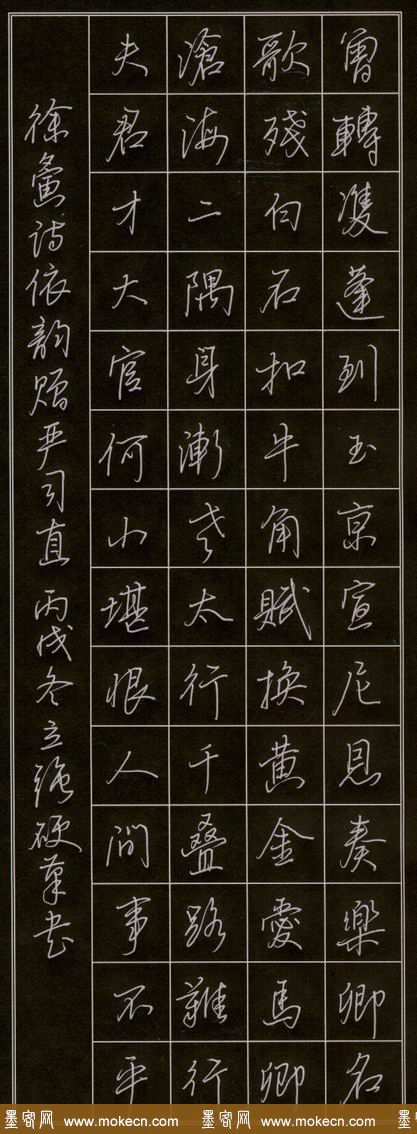 曾轉雙蓬到玉京宣尼恩奏樂卿名
歌殘白石扣牛角賦換黄金愛馬卿
滄海二隅身漸老太行千叠路難行
夫君才大官何小堪恨人間事不平
徐夤诗依韵赠严司直 丙戌冬立强硬筆书
墨客网 www.mokecn.com 墨客网 www.mokecn.com